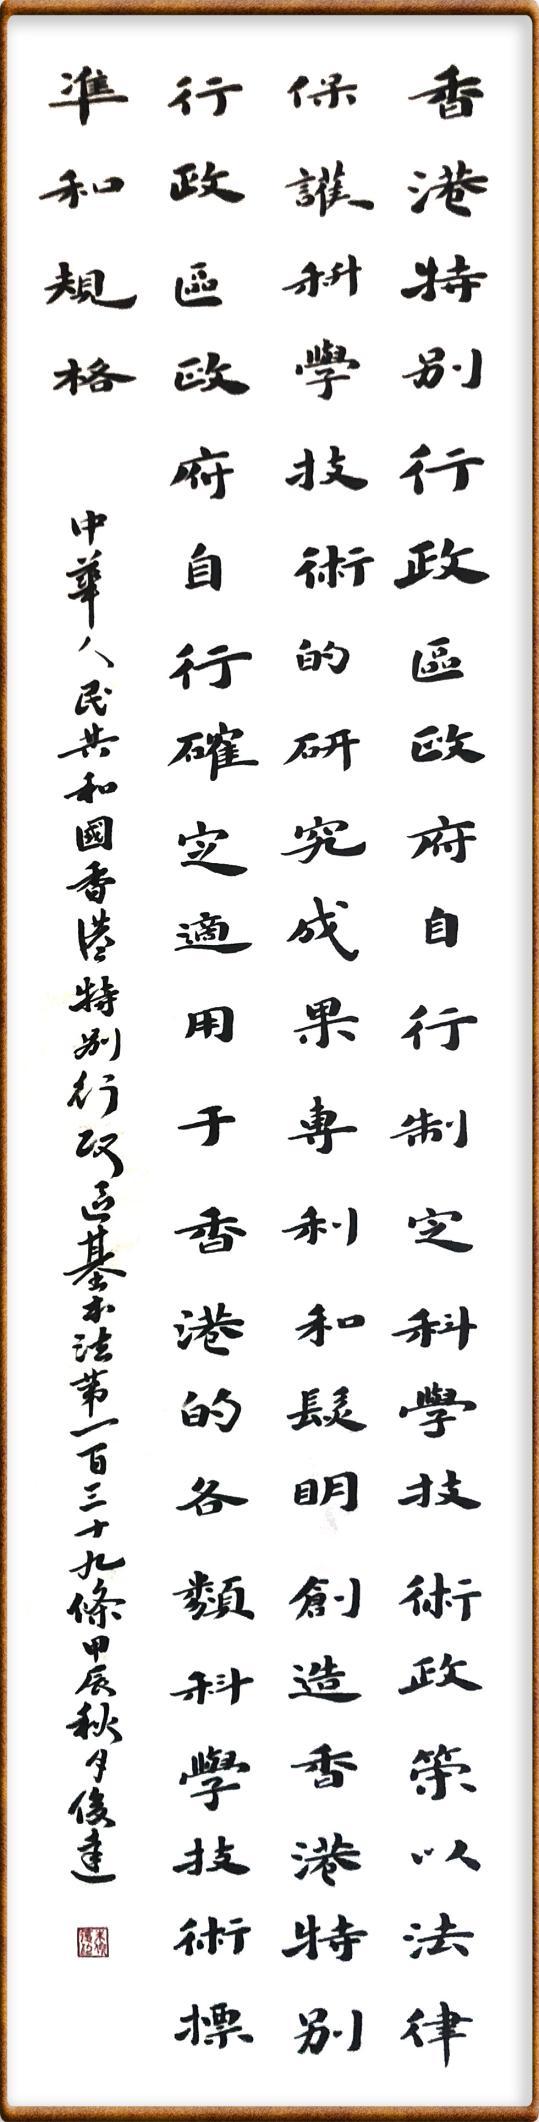 香港特别行政區政府自行制定科學技術政策以法律
保護科學技術的研究成果專利和髮明創造香港特别
行政區政府自行確定適用于香港的各類科學技術標
準和規格
中華人民共和國香港特别行政區基本法第一百三十九條甲辰秋月俊達